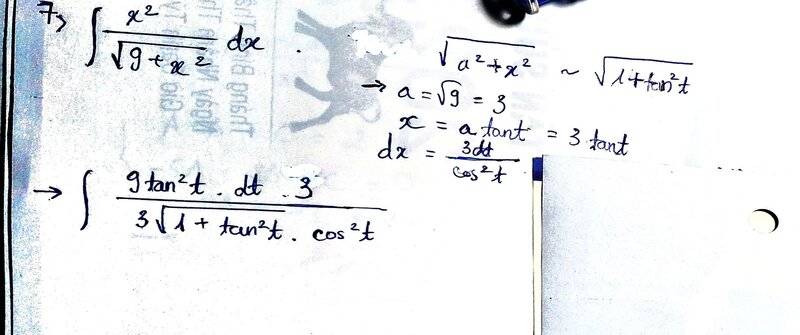 7) ∫ x² / √(9 + x²) dx .
√(a² + x²) ~ √(1 + tan²t)
→ a = √9 = 3
x = a tant = 3 tant
dx = 3dt / cos²t
→ ∫ 9 tan²t . dt . 3 / 3√(1 + tan²t) . cos²t